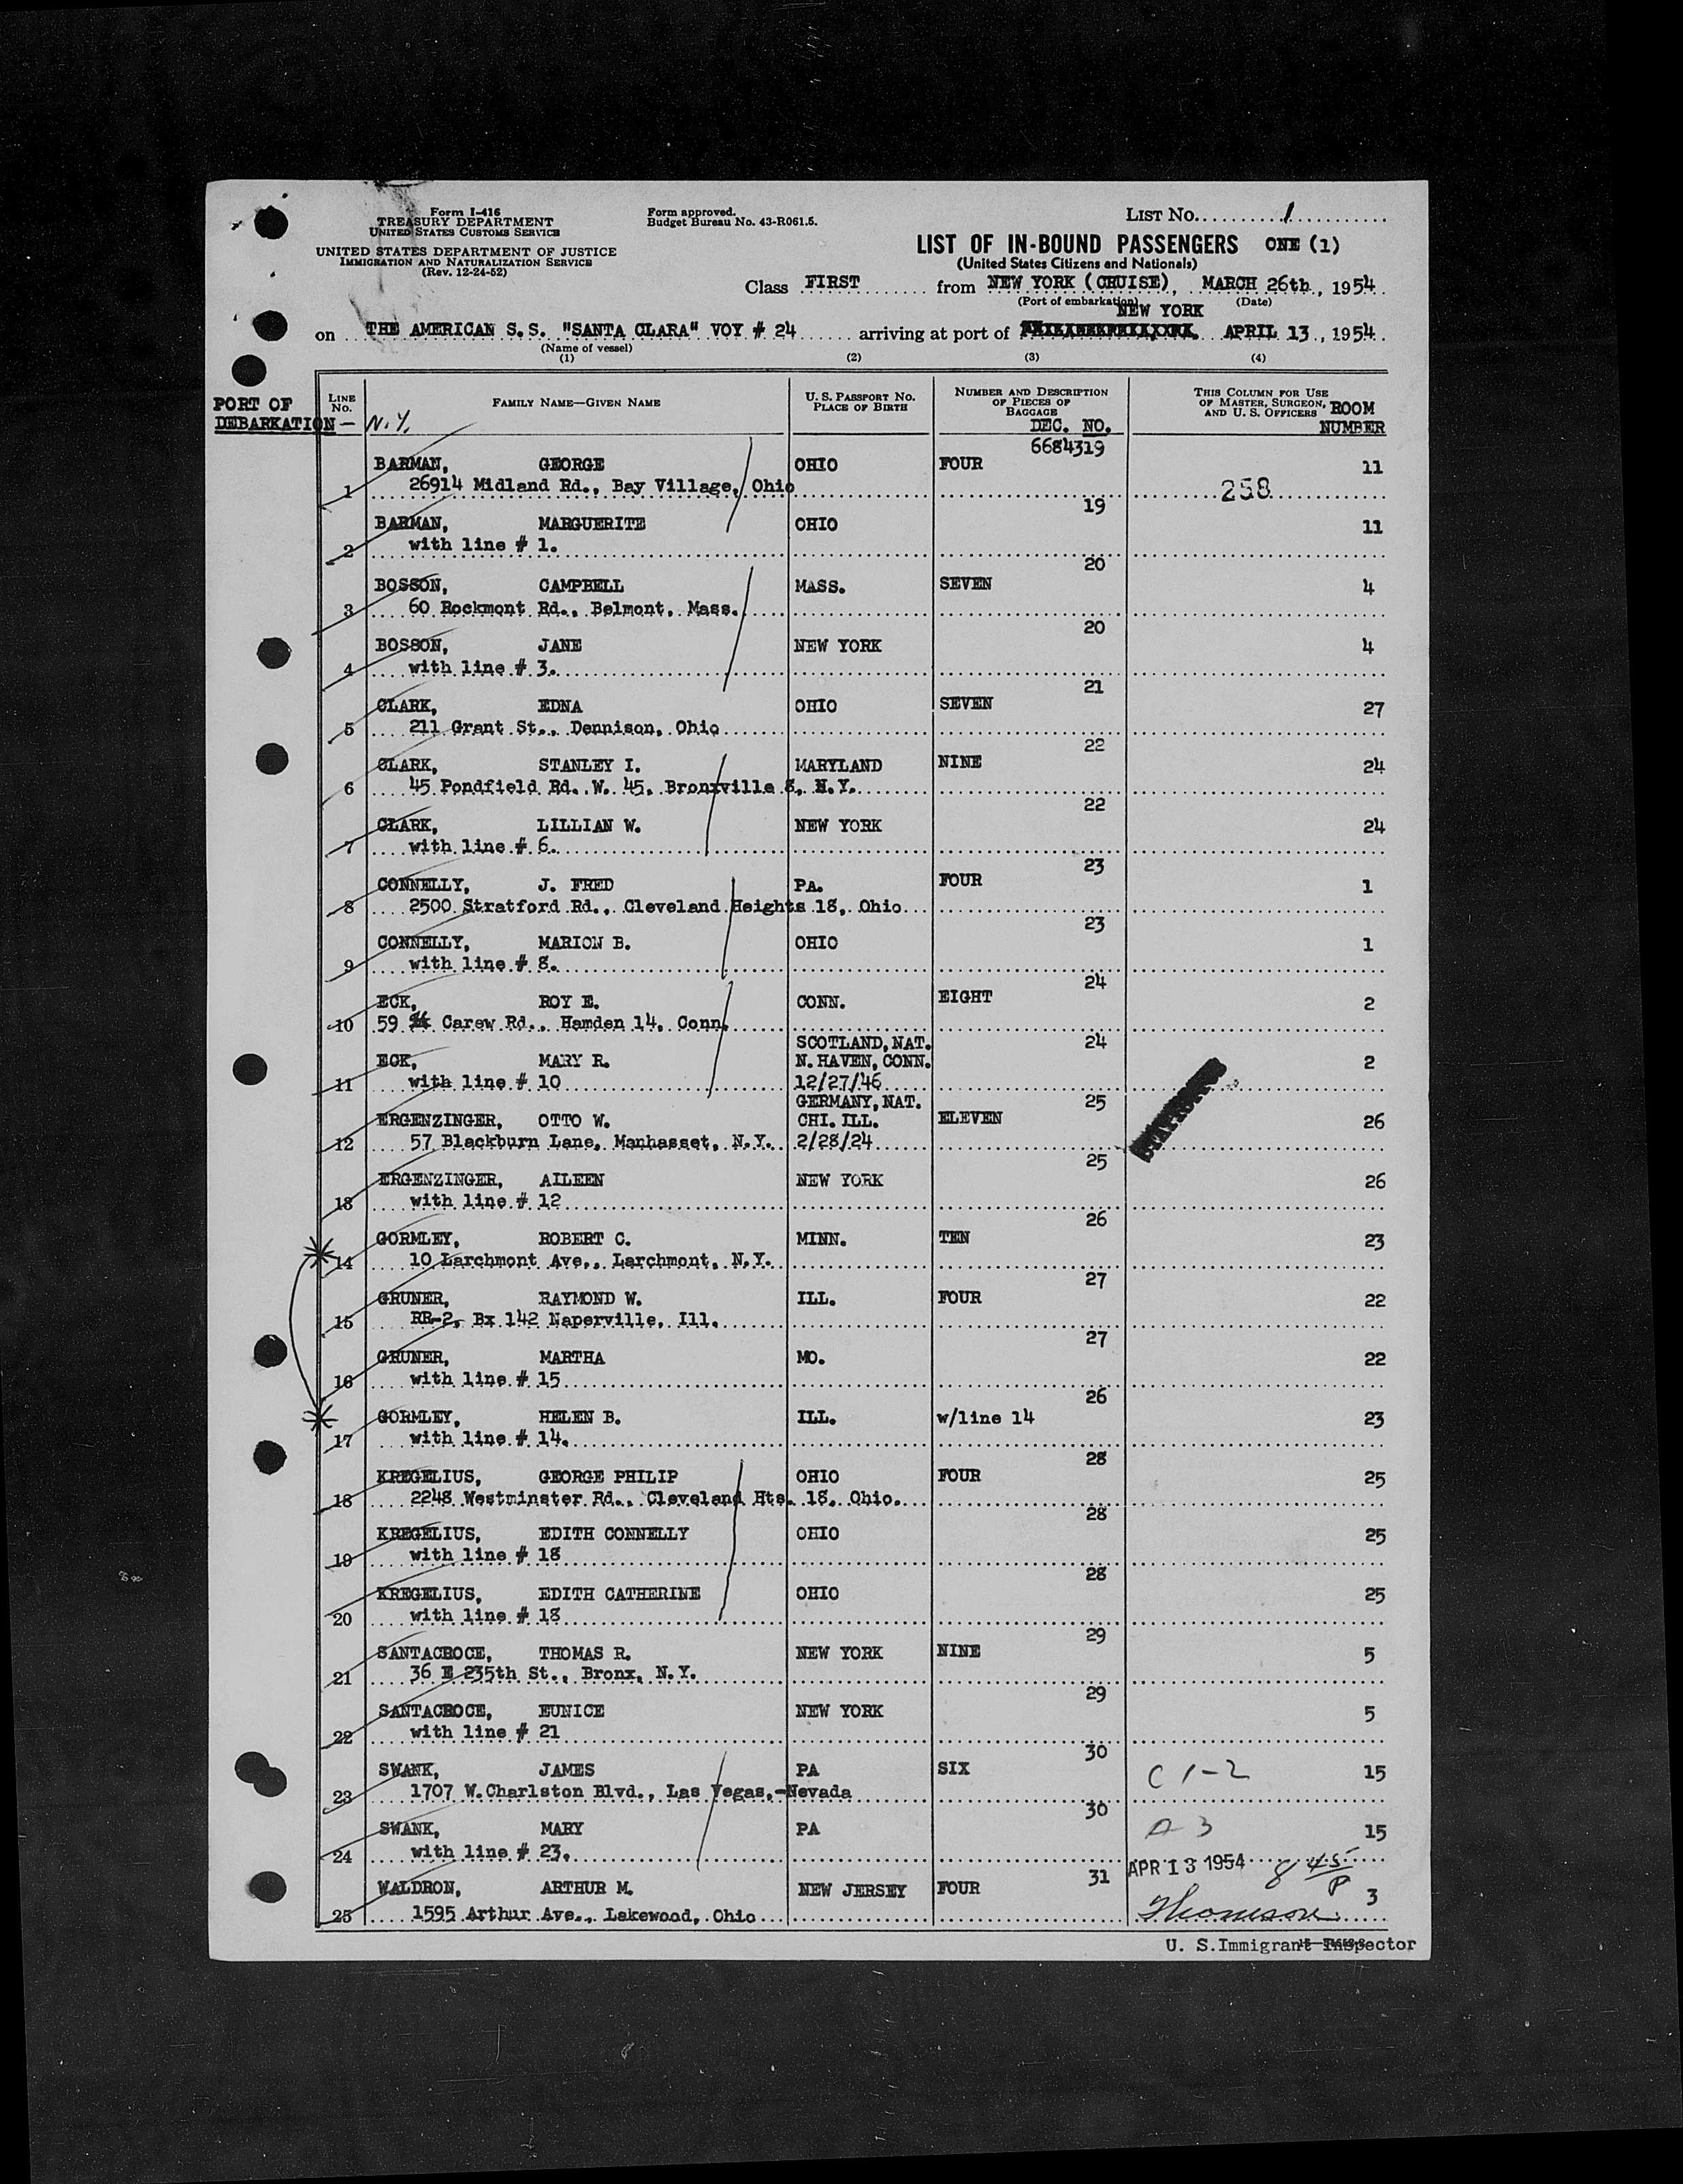 Form I-416
TREASURY DEPARTMENT
UNITED STATES CUSTOMS SERVICE
UNITED STATES DEPARTMENT OF JUSTICE
IMMIGRATION AND NATURALIZATION SERVICE
(Rev. 12-24-52)
Form approved.
Budget Bureau No. 43-R061.5.
LIST NO. 1
LIST OF IN-BOUND PASSENGERS ONE (1)
(United States Citizens and Nationals)
Class FIRST from NEW YORK (CRUISE), MARCH 26th, 1954
(Port of embarkation) (Date)
NEW YORK
on THE AMERICAN S.S. "SANTA CLARA" VOY # 24 arriving at port of APRIL 13, 1954
(Name of vessel)
(1) (2) (3) (4)
PORT OF DEBARKATION — N.Y.
LINE NO. FAMILY NAME—GIVEN NAME U. S. PASSPORT NO. PLACE OF BIRTH NUMBER AND DESCRIPTION OF PIECES OF BAGGAGE DEC. NO. THIS COLUMN FOR USE OF MASTER, SURGEON, AND U. S. OFFICERS ROOM NUMBER
6684319
BARMAN, GEORGE OHIO FOUR 11
1 26914 Midland Rd., Bay Village, Ohio 258
19
BARMAN, MARGUERITE OHIO 11
2 with line # 1.
20
BOSSON, CAMPBELL MASS. SEVEN 4
3 60 Rockmont Rd., Belmont, Mass.
20
BOSSON, JANE NEW YORK 4
4 with line # 3.
21
CLARK, EDNA OHIO SEVEN 27
5 211 Grant St., Dennison, Ohio
22
CLARK, STANLEY I. MARYLAND NINE 24
6 45 Pondfield Rd. W. 45, Bronxville 8, N.Y.
22
CLARK, LILLIAN W. NEW YORK 24
7 with line # 6.
23
CONNELLY, J. FRED PA. FOUR 1
8 2500 Stratford Rd., Cleveland Heights 18, Ohio
23
CONNELLY, MARION B. OHIO 1
9 with line # 8.
24
ECK, ROY E. CONN. EIGHT 2
10 59 Carew Rd., Hamden 14, Conn.
SCOTLAND, NAT. 24
ECK, MARY R. N. HAVEN, CONN. 2
11 with line # 10 12/27/46
GERMANY, NAT. 25
ERGENZINGER, OTTO W. CHI. ILL. ELEVEN 26
12 57 Blackburn Lane, Manhasset, N.Y. 2/28/24
25
ERGENZINGER, AILEEN NEW YORK 26
13 with line # 12
26
GORMLEY, ROBERT C. MINN. TEN 23
14 10 Larchmont Ave., Larchmont, N.Y.
27
GRUNER, RAYMOND W. ILL. FOUR 22
15 RR-2, Bx 142 Naperville, Ill.
27
GRUNER, MARTHA MO. 22
16 with line # 15
26
GORMLEY, HELEN B. ILL. w/line 14 23
17 with line # 14.
28
KREGELIUS, GEORGE PHILIP OHIO FOUR 25
18 2248 Westminster Rd., Cleveland Hts. 18, Ohio.
28
KREGELIUS, EDITH CONNELLY OHIO 25
19 with line # 18
28
KREGELIUS, EDITH CATHERINE OHIO 25
20 with line # 18
29
SANTACROCE, THOMAS R. NEW YORK NINE 5
21 36 E 235th St., Bronx, N.Y.
29
SANTACROCE, EUNICE NEW YORK 5
22 with line # 21
30
SWANK, JAMES PA SIX C 1-2 15
23 1707 W.Charlston Blvd., Las Vegas,-Nevada
30
SWANK, MARY PA A 3 15
24 with line # 23.
31 APR 13 1954 8 45 P
WALDRON, ARTHUR M. NEW JERSEY FOUR 3
25 1595 Arthur Ave., Lakewood, Ohio Thomson
U. S.Immigrant Inspector